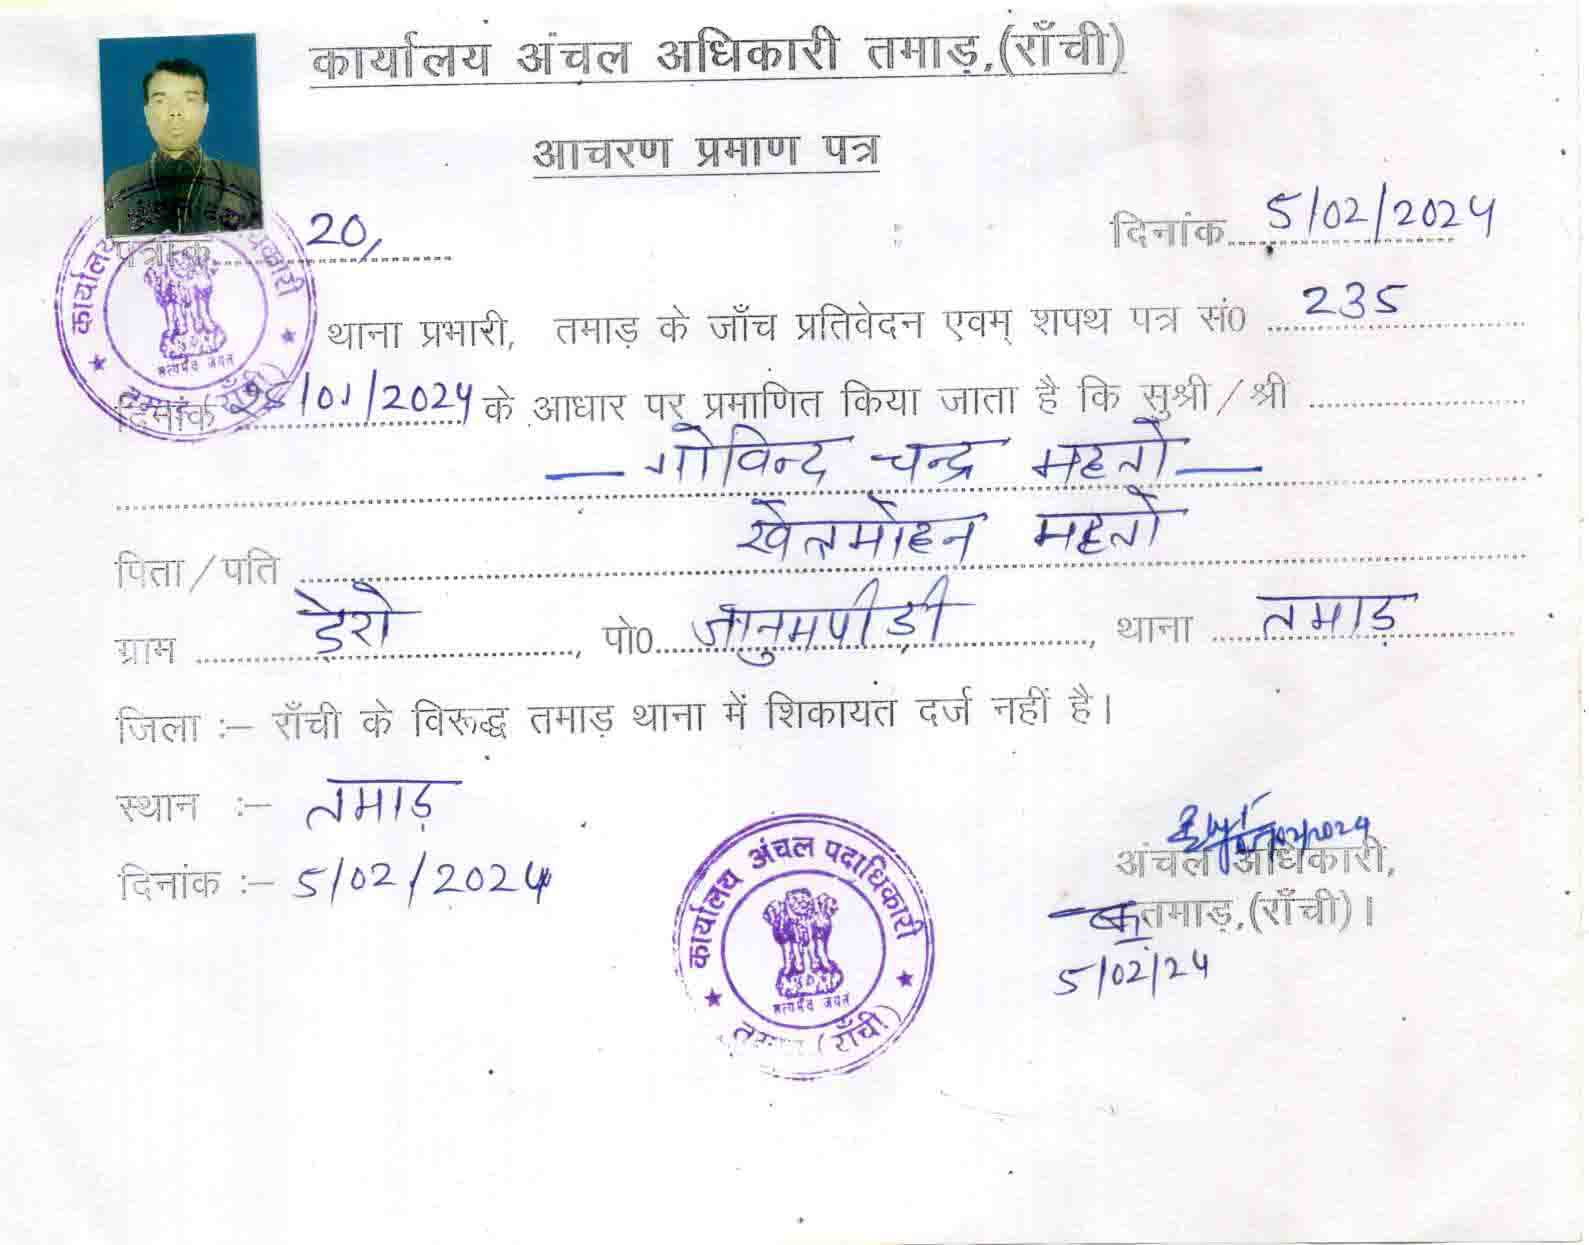 कार्यालय अंचल अधिकारी तमाड़,(राँची)
आचरण प्रमाण पत्र
पत्रांक 20/ दिनांक 5/02/2024
थाना प्रभारी, तमाड़ के जाँच प्रतिवेदन एवम् शपथ पत्र सं0 235
दिनांक /01/2024 के आधार पर प्रमाणित किया जाता है कि सुश्री/श्री
गोविन्द चन्द्र महतो
पिता/पति खेतमोहन महतो
ग्राम डेरो, पो0 जानुमपीड़ी, थाना तमाड़
जिला :– राँची के विरूद्ध तमाड़ थाना में शिकायत दर्ज नहीं है।
स्थान :– तमाड़
दिनांक :– 5/02/2024
अंचल अधिकारी,
तमाड़,(राँची)।
5/02/24
कार्यालय अंचल पदाधिकारी
सत्यमेव जयते
तमाड़ (राँची)